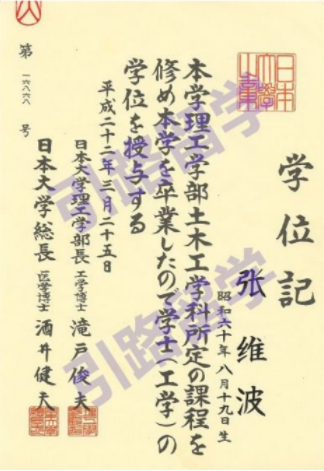 学位記
张维波
昭和六十年八月十九日生
本学理工学部土木工学科所定の課程を
修め本学を卒業したので学士（工学）の
学位を授与する
平成二十二年三月二十五日
日本大学理工学部長 工学博士 滝戸俊夫
日本大学総長 医学博士 酒井健夫
第一六八六八号
日本大學
引路留学
引路留学